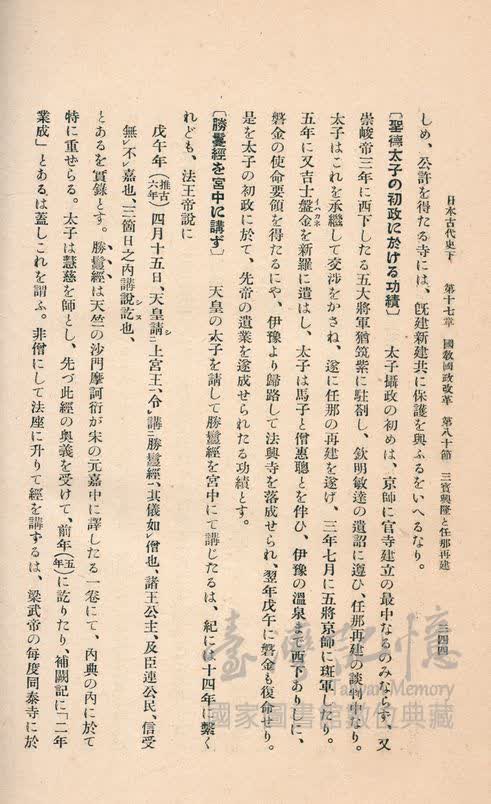 日本古代史下　第十七章　國敎國政改革　第八十節　三寶興隆と任那再建　三四四
しめ、公許を得たる寺には、旣建新建共に保護を與ふるをいへるなり。
〔聖德太子の初政に於ける功績〕　太子攝政の初めは、京師に官寺建立の最中なるのみならず、又
崇峻帝三年に西下したる五大將軍猶筑紫に駐剳し、欽明敏達の遺詔に遵ひ、任那再建の談判中なり。
太子はこれを承繼して交渉をかさね、遂に任那の再建を遂げ、三年七月に五將京師に班軍したり。
五年に又吉士盤金を新羅に遣はし、太子は馬子と僧惠聰とを伴ひ、伊豫の溫泉まで西下ありしに、
イハカネ
磐金の使命要領を得たるにや、伊豫より歸路して法興寺を落成せられ、翌年戊午に磐金も復命せり。
是を太子の初政に於て、先帝の遺業を遂成せられたる功績とす。
〔勝鬘經を宮中に講ず〕　天皇の太子を請して勝鬘經を宮中にて講じたるは、紀には十四年に繫く
れども、法王帝說に
戊午年（推古六年）四月十五日、天皇請シ上宮王、令講勝鬘經、其儀如僧也、諸王公主、及臣連公民、信受
無不嘉也、三箇日之內講說訖也、
とあるを實錄とす。勝鬘經は天竺の沙門摩訶衍が宋の元嘉中に譯したる一卷にて、內典の內に於て
特に重せらる。太子は慧慈を師とし、先づ此經の奧義を受けて、前年（五年）に訖りたり、補闕記に「二年
業成」とあるは蓋しこれを謂ふ。非僧にして法座に升りて經を講ずるは、梁武帝の每度同泰寺に於
臺灣記憶
Taiwan Memory
國家圖書館數位典藏